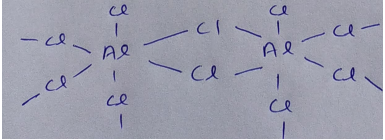 Cl Cl
Cl Cl Cl
Al Al
Cl Cl Cl
Cl Cl